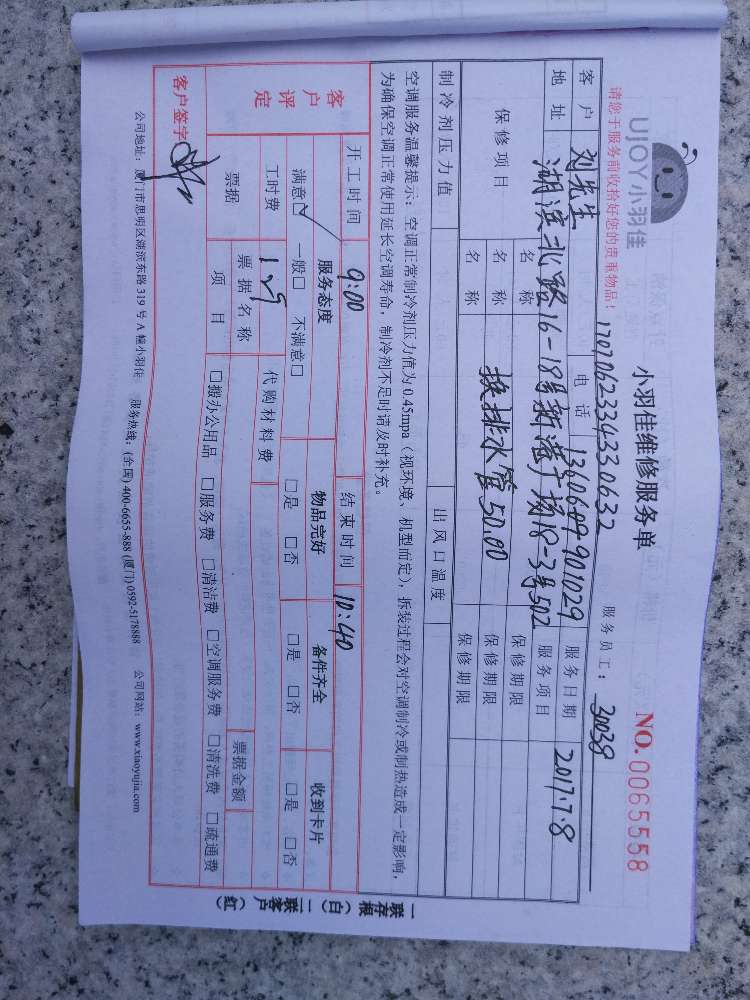 UJOY小羽佳
小羽佳维修服务单
NO.0065558
请您于服务前收拾好您的贵重物品！
1707062334330632
服务员工：30038
客户 刘先生 电话 1360609901029 服务日期 2017.7.8
地址 湖滨北路16-18号新港广场18-3号502 服务项目
保修项目 名称 保修期限
名称 换排水管50.00 保修期限
名称 保修期限
制冷剂压力值 出风口温度
空调服务温馨提示：空调正常制冷剂压力值为0.45mpa（视环境、机型而定），拆装过程会对空调制冷或制热造成一定影响，
为确保空调正常使用延长空调寿命，制冷剂不足时请及时补充。
开工时间 9:00 结束时间 10:40
客户评定
服务态度 物品完好 备件齐全 收到卡片
满意☑ 一般□ 不满意□ □是 □否 □是 □否 □是 □否
工时费 代购材料费
票据 票据名称 票据金额
项目 □搬办公用品 □服务费 □清洁费 □空调服务费 □清洗费 □疏通费
客户签字
公司地址：厦门市思明区湖滨东路319号A幢小羽佳 服务热线：(全国) 400-6655-888 (厦门) 0592-5178888 公司网站：www.xiaoyujia.com
一联存根（白）二联客户（红）